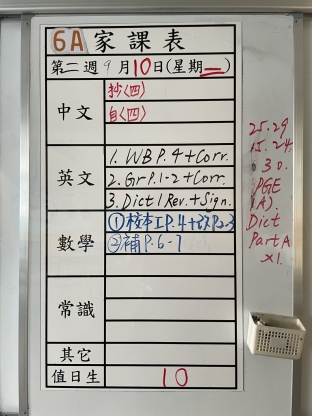 6A 家課表
第二週 9月10日(星期二)
中文
抄<四>
自<四>
英文
1. WB P.4 + Corr.
2. Gr P.1-2 + Corr.
3. Dict 1 Rev. + Sign.
數學
①校本工P.4+改P.2-3
②補P.6-7
常識
其它
值日生 10
25.29
15.24
30.
PGE
(A).
Dict
Part A
x1.